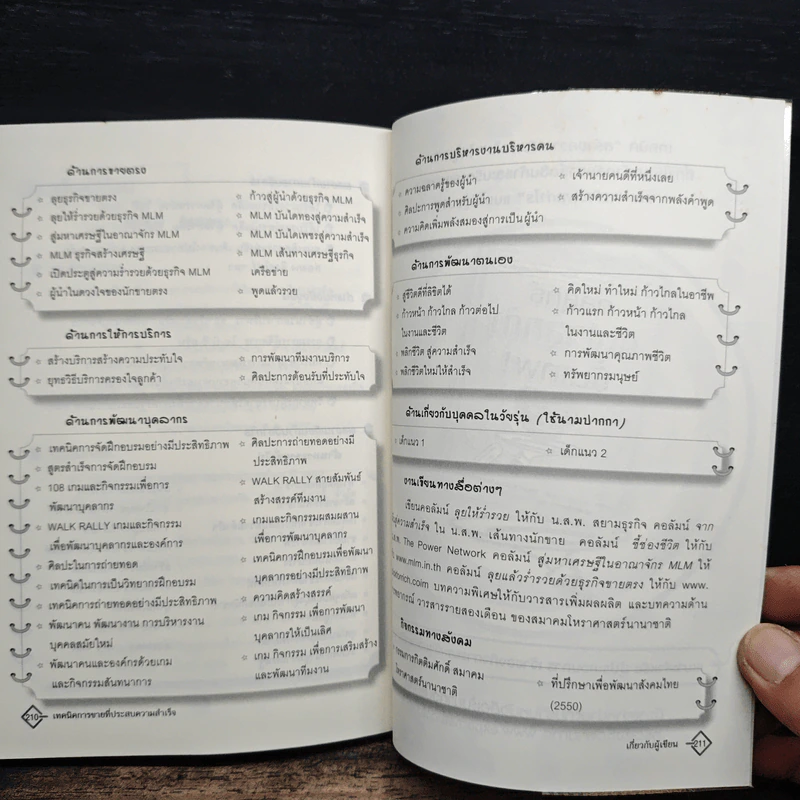 ด้านการขายตรง
☆ ลุยธุรกิจขายตรง
☆ ลุยให้ร่ำรวยด้วยธุรกิจ MLM
☆ สู่มหาเศรษฐีในอาณาจักร MLM
☆ MLM ธุรกิจสร้างเศรษฐี
☆ เปิดประตูสู่ความร่ำรวยด้วยธุรกิจ MLM
☆ ผู้นำในดวงใจของนักขายตรง
☆ ก้าวสู่ผู้นำด้วยธุรกิจ MLM
☆ MLM บันไดทองสู่ความสำเร็จ
☆ MLM บันไดเพชรสู่ความสำเร็จ
☆ MLM เส้นทางเศรษฐีธุรกิจ
เครือข่าย
☆ พูดแล้วรวย
ด้านการให้การบริการ
☆ สร้างบริการสร้างความประทับใจ
☆ ยุทธวิธีบริการครองใจลูกค้า
☆ การพัฒนาทีมงานบริการ
☆ ศิลปะการต้อนรับที่ประทับใจ
ด้านการพัฒนาบุคลากร
☆ เทคนิคการจัดฝึกอบรมอย่างมีประสิทธิภาพ
☆ สูตรสำเร็จการจัดฝึกอบรม
☆ 108 เกมและกิจกรรมเพื่อการ
พัฒนาบุคลากร
☆ WALK RALLY เกมและกิจกรรม
เพื่อพัฒนาบุคลากรและองค์การ
☆ ศิลปะในการถ่ายทอด
☆ เทคนิคในการเป็นวิทยากรฝึกอบรม
☆ เทคนิคการถ่ายทอดอย่างมีประสิทธิภาพ
☆ พัฒนาคน พัฒนางาน การบริหารงาน
บุคคลสมัยใหม่
☆ พัฒนาคนและองค์กรด้วยเกม
และกิจกรรมสันทนาการ
☆ ศิลปะการถ่ายทอดอย่างมี
ประสิทธิภาพ
☆ WALK RALLY สายสัมพันธ์
สร้างสรรค์ทีมงาน
☆ เกมและกิจกรรมผสมผสาน
เพื่อการพัฒนาบุคลากร
☆ เทคนิคการฝึกอบรมเพื่อพัฒนา
บุคลากรอย่างมีประสิทธิภาพ
☆ ความคิดสร้างสรรค์
☆ เกม กิจกรรม เพื่อการพัฒนา
บุคลากรให้เป็นเลิศ
☆ เกม กิจกรรม เพื่อการเสริมสร้าง
และพัฒนาทีมงาน
210 เทคนิคการขายที่ประสบความสำเร็จ
ด้านการบริหารงานบริหารคน
☆ ความฉลาดรู้ของผู้นำ
☆ ศิลปะการพูดสำหรับผู้นำ
☆ ความคิดเพิ่มพลังสมองสู่การเป็นผู้นำ
☆ เจ้านายคนดีที่หนึ่งเลย
☆ สร้างความสำเร็จจากพลังคำพูด
ด้านการพัฒนาตนเอง
☆ สู่ชีวิตดีที่ลิขิตได้
☆ ก้าวหน้า ก้าวไกล ก้าวต่อไป
ในงานและชีวิต
☆ พลิกชีวิต สู่ความสำเร็จ
☆ พลิกชีวิตใหม่ให้สำเร็จ
☆ คิดใหม่ ทำใหม่ ก้าวไกลในอาชีพ
☆ ก้าวแรก ก้าวหน้า ก้าวไกล
ในงานและชีวิต
☆ การพัฒนาคุณภาพชีวิต
☆ ทรัพยากรมนุษย์
ด้านเกี่ยวกับบุคคลในวัยรุ่น (ใช้นามปากกา)
☆ เด็กแนว 1
☆ เด็กแนว 2
งานเขียนทางสื่อต่างๆ
เขียนคอลัมน์ ลุยให้ร่ำรวย ให้กับ น.ส.พ. สยามธุรกิจ คอลัมน์ จาก
ความสำเร็จ ใน น.ส.พ. เส้นทางนักขาย คอลัมน์ ชี้ช่องชีวิต ให้กับ
The Power Network คอลัมน์ สู่มหาเศรษฐีในอาณาจักร MLM ให้
www.mlm.in.th คอลัมน์ ลุยแล้วร่ำรวยด้วยธุรกิจขายตรง ให้กับ www.
บทความพิเศษให้กับวารสารเพิ่มผลผลิต และบทความด้าน
วารสารรายสองเดือน ของสมาคมโหราศาสตร์นานาชาติ
กิจกรรมทางสังคม
กรรมการกิตติมศักดิ์ สมาคม
โหราศาสตร์นานาชาติ
☆ ที่ปรึกษาเพื่อพัฒนาสังคมไทย
(2550)
เกี่ยวกับผู้เขียน 211